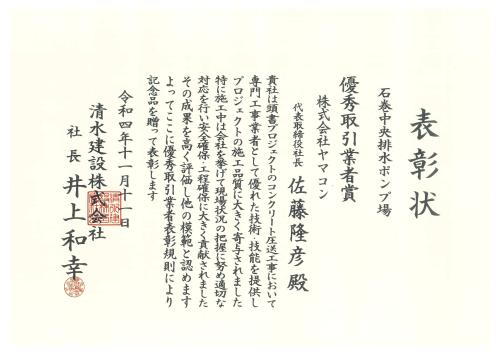 表彰状
石巻中央排水ポンプ場
優秀取引業者賞
株式会社ヤマコン
代表取締役社長 佐藤隆彦殿
貴社は頭書プロジェクトのコンクリート圧送工事において
専門工事業者として優れた技術・技能を提供し
プロジェクトの施工・品質に大きく寄与されました
特に施工中は会社を挙げて現場状況の把握に努め適切な
対応を行い安全確保・工程確保に大きく貢献されました
その成果を高く評価し他の模範と認めます
よってここに優秀取引業者表彰規則により
記念品を贈って表彰します
令和四年十一月十一日
清水建設株式会社
社長 井上和幸